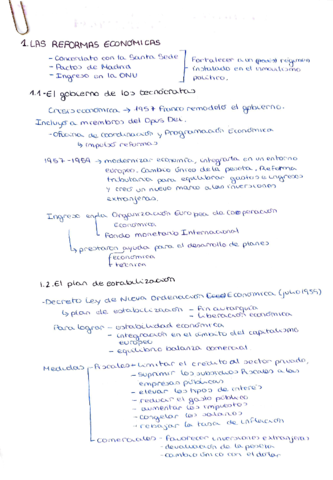 1. LAS REFORMAS ECONÓMICAS
- Concordato con la Santa Sede
- Pactos de Madrid
- Ingreso en la ONU
Fortalecer a un régimen
instalado en el inmovilismo
político.
1.1- El gobierno de los tecnócratas
Crisis económica → 1957 Franco remodeló el gobierno.
Incluyó a miembros del Opus Dei.
- Oficina de coordinación y Programación Económica
↳ impulsó reformas
1957-1959 → modernizar economía, integrarla en un entorno
europeo, cambio único de la peseta, Reforma
tributaria para equilibrar gastos e ingresos
y creó un nuevo marco a las inversiones
extranjeras.
Ingreso en la Organización Europea de Cooperación
Económica
Fondo monetario Internacional
↳ prestaron ayuda para el desarrollo de planes
económica
+ técnica
1.2. El plan de estabilización
- Decreto Ley de Nueva Ordenación Económica (julio 1959)
↳ plan de estabilización - Fin autarquía
- Liberación económica
Para lograr - estabilidad económica
- integración en el ámbito del capitalismo
europeo
- equilibrio balanza comercial
Medidas - Fiscales - limitar el crédito al sector privado,
- suprimir los subsidios fiscales a las
empresas públicas
- elevar los tipos de interés
- reducir el gasto público
- aumentar los impuestos
- congelar los salarios
- rebajar la tasa de inflación
- comerciales - Favorecer inversiones extranjeras
- devaluación de la peseta
- cambio único con el dólar